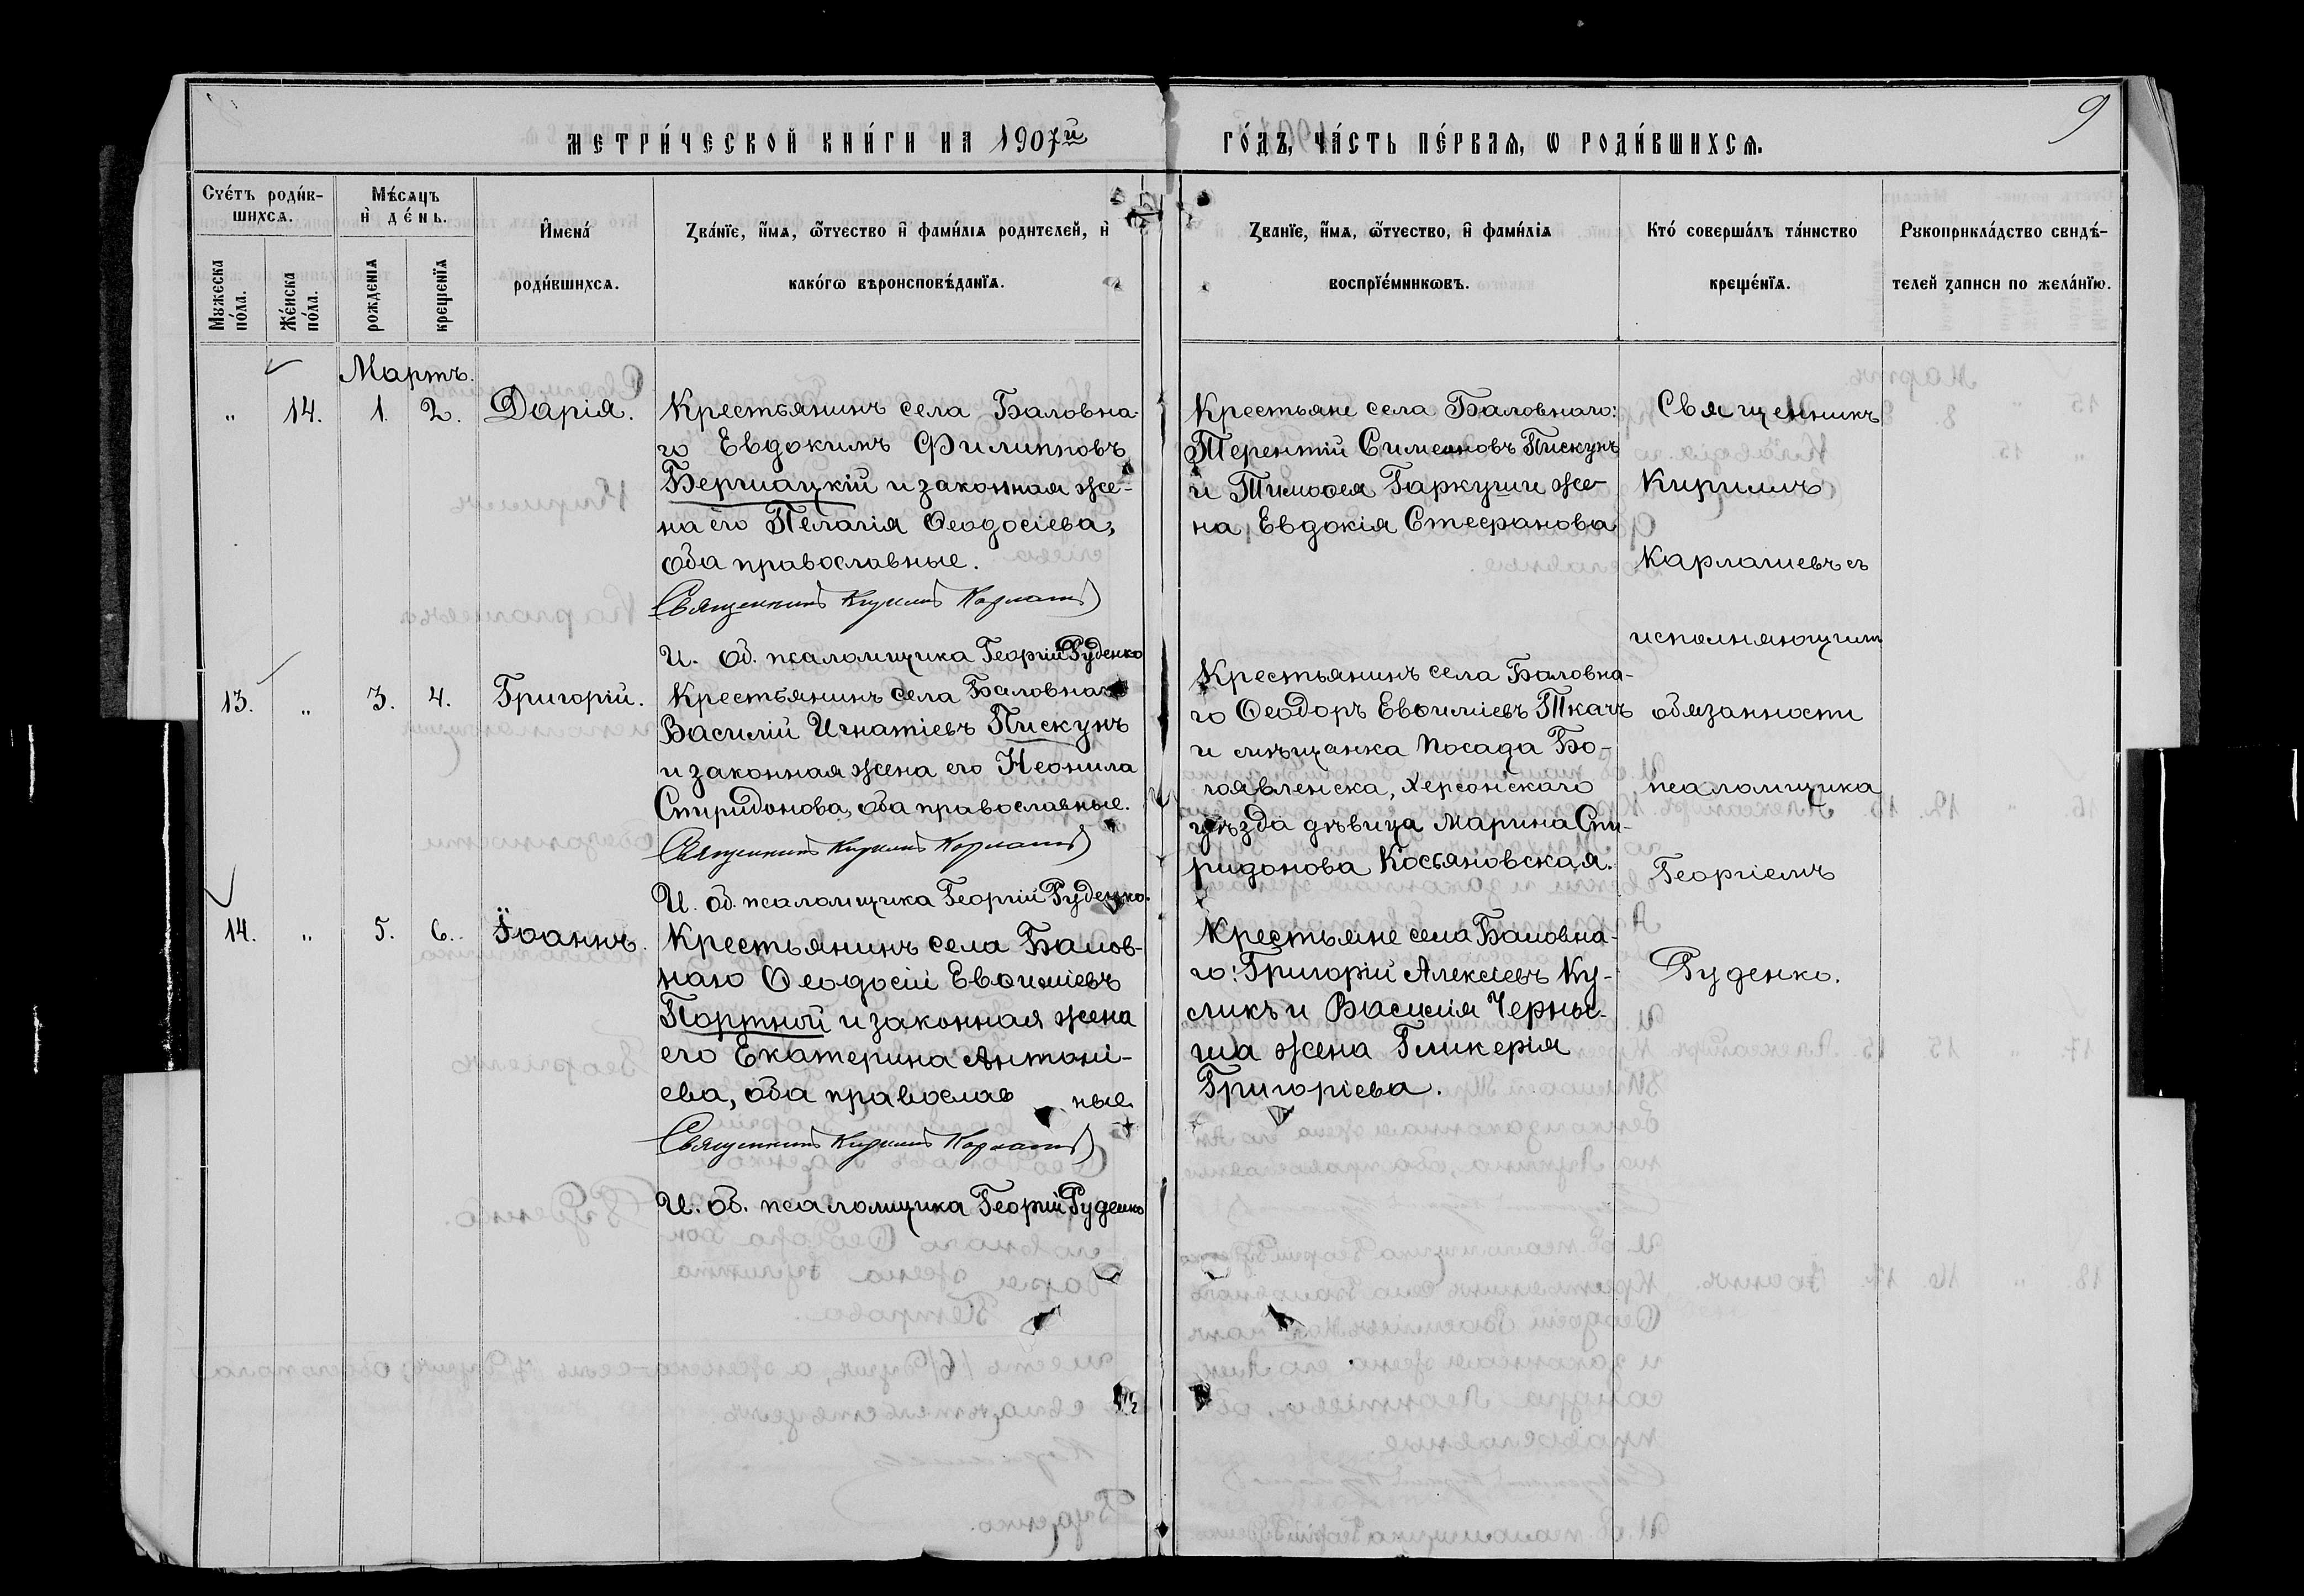 9
МЕТРИ́ЧЕСКОЙ КНИ́ГИ НА 1907й ГО́ДЪ, ЧА́СТЬ ПЕ́РВАѦ, Ѡ РОДИ́ВШИХСѦ.
Сче́тъ роди́в-
шихсѧ.
Мꙋжеска
по́ла.
Же́нска
по́ла.
Мѣ́сѧцъ
и҆ де́нь.
рожденїѧ
крещенїѧ
И҆мена́
роди́вшихсѧ.
Зва́нїе, и҆́мѧ, ѻ҆́тчество и҆ фами́лїѧ родителей, и҆
како́гѡ вѣроисповѣ́данїѧ.
Званїе, и҆́мѧ, ѻ҆́тчество, и҆ фами́лїѧ
воспрїе́мникѡвъ.
Кто́ соверша́лъ та́инство
креще́нїѧ.
Рꙋкоприкла́дство свидѣ́-
телей записи по жела́нїю.
Мартъ.
„ 14. 1. 2. Дарія.
Крестьянинъ села Баловна-
го Евдокимъ Филипповъ
Бершацкій и законная же-
на его Пелагія Ѳеодосіева,
оба православные.
Священникъ Кириллъ Карлашевъ
И. об. псаломщика Георгій Руденко
Крестьяне села Баловнаго:
Терентій Симеоновъ Пискунъ
и Тимоѳея Гаркуши же-
на Евдокія Стефанова
Священникъ
Кириллъ
Карлашевъ съ
исполняющим
обязанности
псаломщика
Георгіемъ
Руденко.
13. „ 3. 4. Григорій.
Крестьянинъ села Баловнаго
Василій Игнатіевъ Пискунъ
и законная жена его Неонила
Спиридонова, оба православные.
Священникъ Кириллъ Карлашевъ
И. об. псаломщика Георгій Руденко.
Крестьянинъ села Баловна-
го Ѳеодоръ Евѳиміевъ Ткачъ
и мѣщанка посада Бо-
гоявленска, Херсонскаго
уѣзда дѣвица Марина Спи-
ридонова Косьяновская.
14. „ 5. 6. Іоаннъ.
Крестьянинъ села Балов-
наго Ѳеодосій Евѳиміевъ
Портной и законная жена
его Екатерина Антоні-
ева, оба православ ные.
Священникъ Кириллъ Карлашевъ
И. об. псаломщика Георгій Руденко
Крестьяне села Баловна-
го: Григорій Алексіевъ Ку-
сликъ и Василія Черны-
ша жена Гликерія
Григоріева.